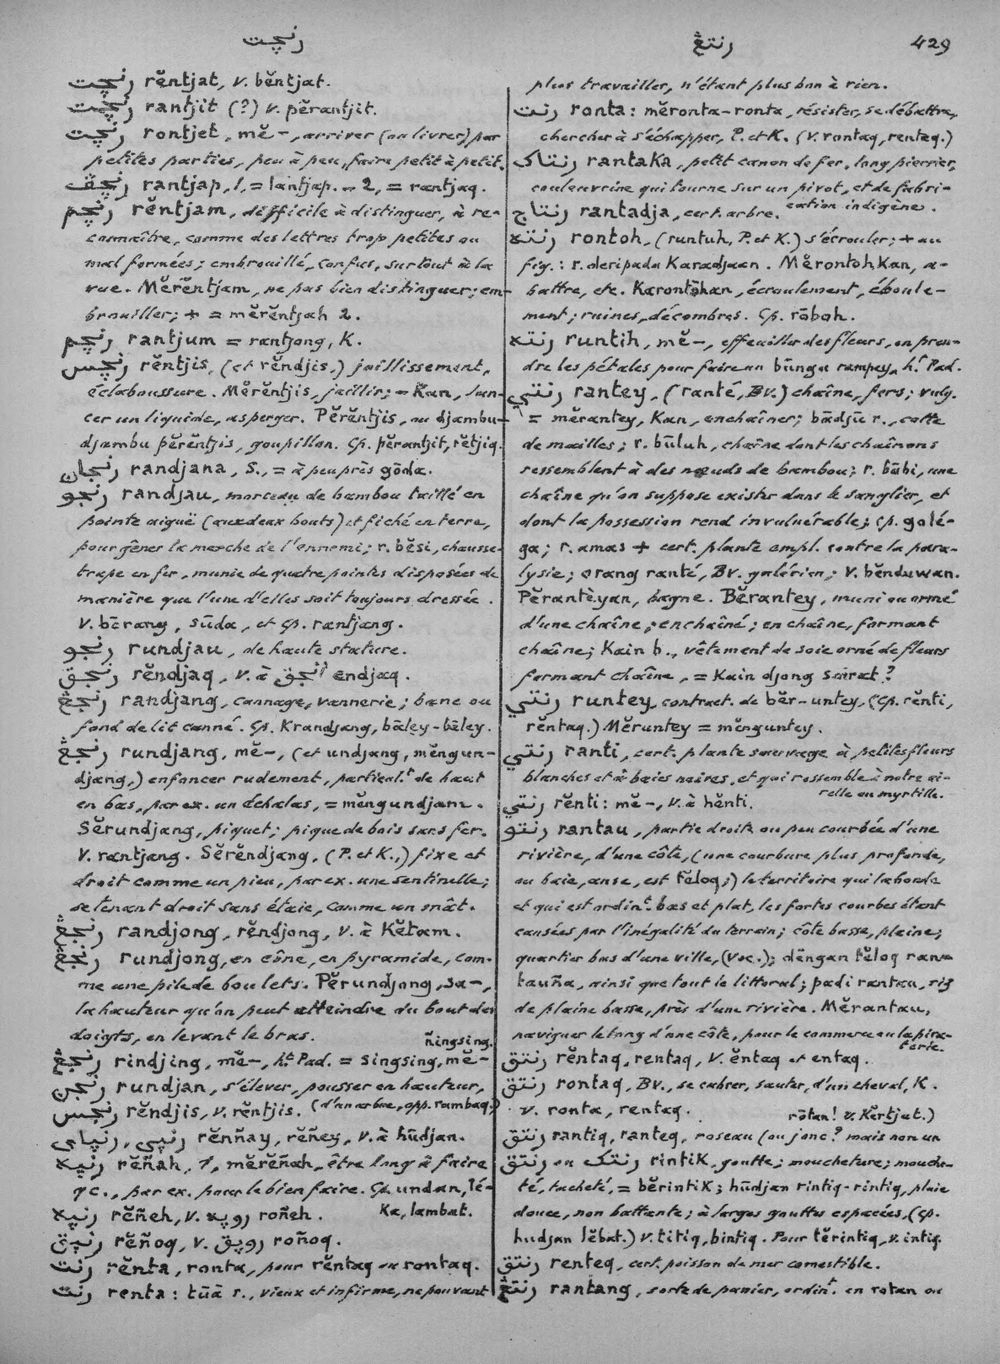 رنچت
رنتڠ
429
رنچت rĕntjat, v. bĕntjat.
رنچت rantjit (?) v. pĕrantjit.
رنچت rontjet, mĕ-, arriver (ou livrer) par
petites parties, peu à peu, faire petit à petit.
رنچڤ rantjap, 1, = lantjap. - 2, = rantjaq.
رنچم rĕntjam, difficile à distinguer, à re-
connaître, comme des lettres trop petites ou
mal formées; embrouillé, confus, surtout à la
vue. Mĕrĕntjam, ne pas bien distinguer; em-
brouiller; + = mĕrĕntjah 2.
رنچم rantjum = rantjong, K.
رنچس rĕntjis, (et rĕndjis,) jaillissement,
éclaboussure. Mĕrĕntjis, jaillir; - kan, lan-
cer un liquide, asperger. Pĕrĕntjis, ou djambu-
djambu pĕrĕntjis, goupillon. Cp. pĕrantjit, rĕtjiq.
رنجان randjana, S., = à peu près gōda.
رنجو randjau, morceau de bambou taillé en
pointe aiguë (aux deux bouts) et fiché en terre,
pour gêner la marche de l'ennemi; r. bĕsi, chausse
trape en fer, munie de quatre pointes disposées de
manière que l'une d'elles soit toujours dressée.
V. bōrang, sūda, et cp. rantjang.
رنجو rundjau, de haute stature.
رنجق rĕndjaq, v. à انجق endjaq.
رنجڠ randjang, cannage, vannerie; banc ou
fond de lit canné. Cp. Krandjang, bāley-bāley.
رنجڠ rundjang, mĕ-, (et undjang, mĕngun-
djang,) enfoncer rudement, particul.t de haut
en bas, par ex. un échalas, = mĕngundjam.
Sĕrundjang, piquet; pique de bois sans fer.
V. rantjang. Sĕrĕndjang, (P. et K.,) fixe et
droit comme un pieu, par ex. une sentinelle;
se tenant droit sans étaie, comme un mât.
رنجڠ randjong, rĕndjong, v. à Kĕtam.
رنجڠ rundjong, en cône, en pyramide, com-
me une pile de boulets. Pĕrundjong, sa-,
la hauteur qu'on peut atteindre du bout des
doigts, en levant le bras.
رنجڠ rindjing, mĕ-, h.t Pad. = singsing, mĕ-
ñingsing.
رنجن rundjan, s'élever, pousser en hauteur,
(d'un arbre, opp. rambaq.)
رنجس rĕndjis, v. rĕntjis.
رنياى, رنيى, rĕnñay, rĕñey, v. à hūdjan.
رنيه rĕñah, 1, mĕrĕñah, être long à faire
qc., par ex. pour le bien faire. Cp. undan, lé-
ka, lambat.
رنيه rĕñeh, v. رويه roñeh.
رنيق rĕñoq, v. رويق roñoq.
رنت rĕnta, ronta, pour rĕntaq ou rontaq.
رنت renta: tūā r., vieux et infirme, ne pouvant
plus travailler, n'étant plus bon à rien.
رنت ronta: mĕronta-ronta, résister, se débattre,
chercher à s'échapper, P. et K. (v. rontaq, renteq.)
رنتاک rantaka, petit canon de fer, long pierrier,
couleuvrine qui tourne sur un pivot, et de fabri-
cation indigène.
رنتاج rantadja, cert. arbre.
رنته rontoh, (runtuh, P. et K.) s'écrouler; + au
fig.: r. deripada Karadjaan. Mĕrontohkan, a-
battre, etc. Karontōhan, écroulement, éboule-
ment; ruines, décombres. Cp. rōboh.
رنته runtih, mĕ-, effeuiller des fleurs, en pren-
dre les pétales pour faire un būnga rampey, h.t Pad.
رنتي rantey, (ranté, Bv.) chaîne, fers; vulg.
= mĕrantey, Kan, enchaîner; bādjū r., cotte
de mailles; r. būluh, chaîne dont les chaînons
ressemblent à des nœuds de bambou; r. bābi, une
chaîne qu'on suppose exister dans le sanglier, et
dont la possession rend invulnérable; cp. galé-
ga; r. amas + cert. plante empl. contre la para-
lysie; orang ranté, Bv. galérien; v. bĕnduwan.
Pĕrantèyan, bagne. Bĕrantey, muni ou armé
d'une chaîne, enchaîné; en chaîne, formant
chaîne; Kain b., vêtement de soie orné de fleurs
formant chaîne, = Kain djong sarat?
رنتي runtey, contract. de bĕr-untey, (Cp. rĕnti,
rĕntaq.) Mĕruntey = mĕnguntey.
رنتي ranti, cert. plante sauvage à petites fleurs
blanches et à baies noires, et qui ressemble à notre ai-
relle ou myrtille.
رنتي rĕnti: mĕ-, v. à hĕnti.
رنتو rantau, partie droite ou peu courbée d'une
rivière, d'une côte, (une courbure plus profonde,
ou baie, anse, est tĕloq;) le territoire qui la borde
et qui est ordin.t bas et plat, les fortes courbes étant
causées par l'inégalité du terrain; côte basse, plaine;
quartier bas d'une ville, (Voc.); dĕngan tĕloq ran-
tauña, ainsi que tout le littoral; padi rantau, riz
de plaine basse, près d'une rivière. Mĕrantau,
naviguer le long d'une côte, pour le commerce ou la pira-
terie.
رنتق rĕntaq, rentaq, v. ĕntaq et entaq.
رنتق rontaq, Bv., se cabrer, sauter, d'un cheval, K.
v. ronta, rentaq.
رنتق rantiq, ranteq, roseau (ou jonc? mais non un
rōtan! v. Kĕrtjut.)
رنتق ou رنتک rintik, goutte; moucheture; mouche-
té, tacheté, = bĕrintik; hūdjan rintiq-rintiq, pluie
douce, non battante; à larges gouttes espacées, (cp.
hudjan lĕbat.) v. titiq, bintiq. Pour tĕrintiq, v. intiq.
رنتق renteq, cert. poisson de mer comestible.
رنتڠ rantang, sorte de panier, ordin.t en rotan ou